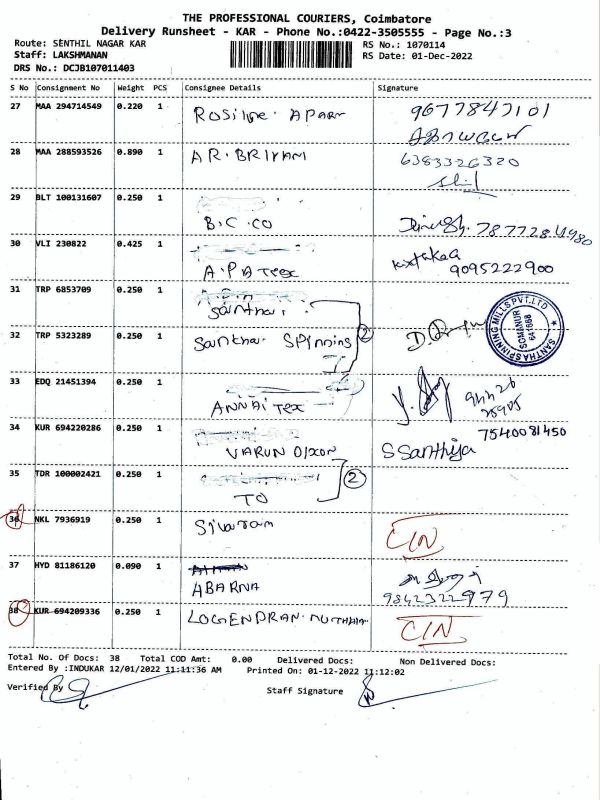 THE PROFESSIONAL COURIERS, Coimbatore
Delivery Runsheet - KAR - Phone No.:0422-3505555 - Page No.:3
Route: SENTHIL NAGAR KAR
RS No.: 1070114
Staff: LAKSHMANAN
RS Date: 01-Dec-2022
DRS No.: DCJB107011403
S No Consignment No Weight PCS Consignee Details Signature
27 MAA 294714549 0.220 1 9677847101
28 MAA 288593526 0.890 1 AR. BRIYAM 6383326320
29 BLT 100131607 0.250 1
B.C.CO 7877284980
30 VLI 230822 0.425 1
A.P.A Teex 9095222900
31 TRP 6853709 0.250 1
Santhai.
32 TRP 5323289 0.250 1 Santhai Spinning 2
SANTHA SPINNING MILLS PVT. LTD.
SOMANUR
641668
33 EDQ 21451394 0.250 1
ANNAI Tex
34 KUR 694220286 0.250 1 7540081450
VARUN DIXON S Santhija
35 TDR 100002421 0.250 1 2
TO
36 NKL 7936919 0.250 1 Sivaram CIN
37 HYD 81186120 0.090 1
ABARNA 9842322979
38 KUR 694209336 0.250 1 LOGENDRAN. MUTHAIA CIN
Total No. Of Docs: 38 Total COD Amt: 0.00 Delivered Docs: Non Delivered Docs:
Entered By :INDUKAR 12/01/2022 11:11:36 AM Printed On: 01-12-2022 11:12:02
Verified By Staff Signature